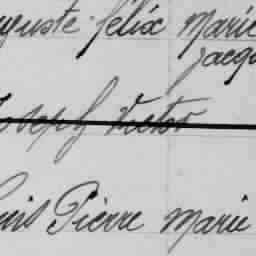 Auguste félix Marie
Jacqu
Joseph Victor
Louis Pierre Marie